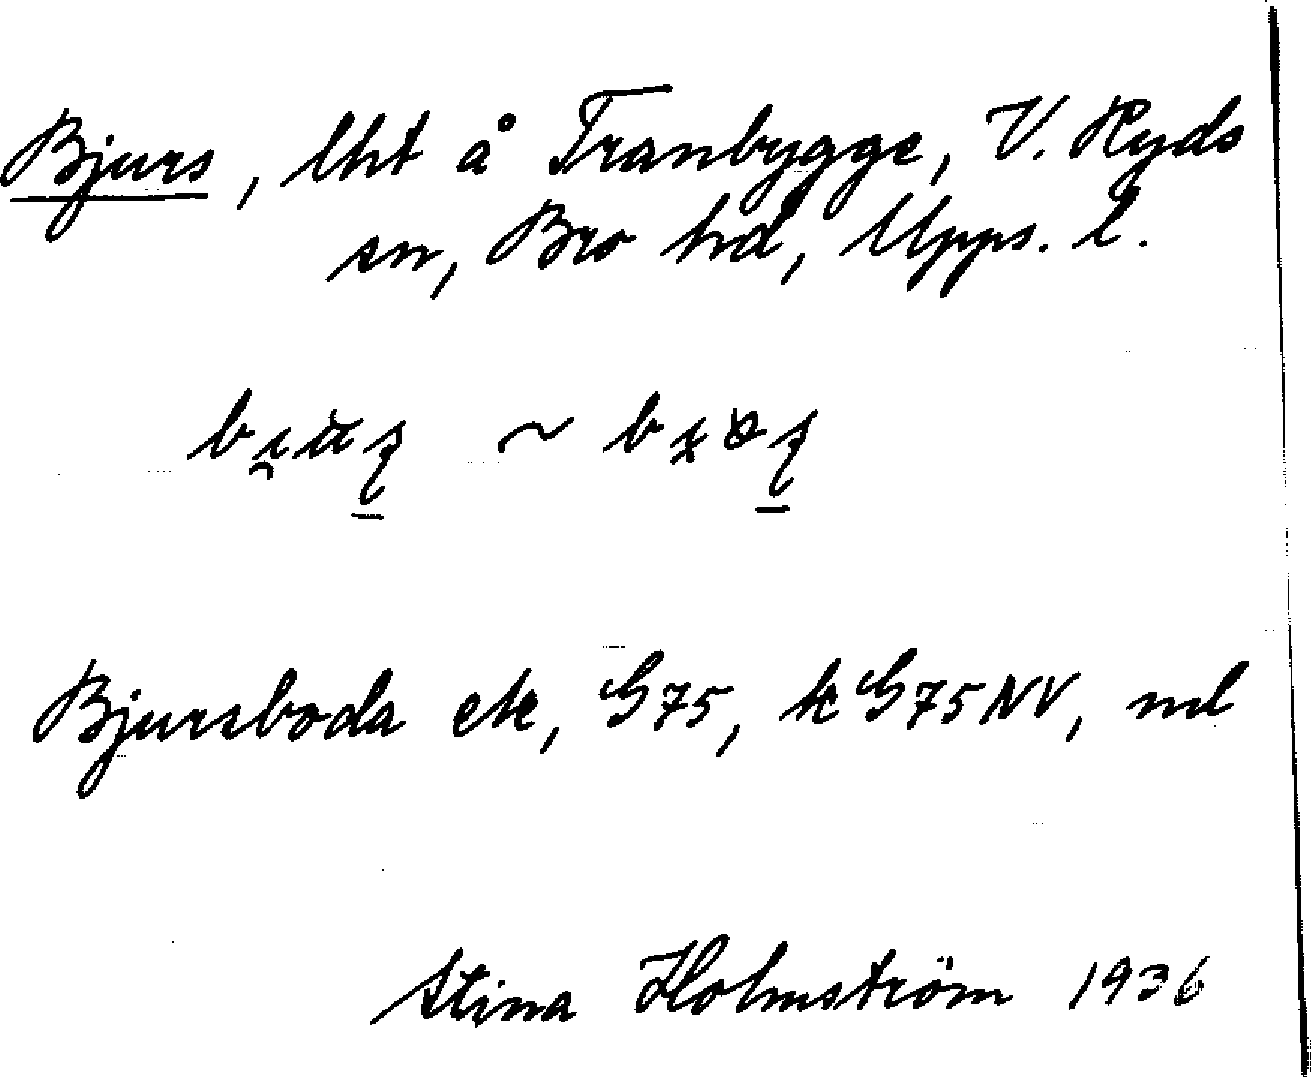 Bjurs, lht å Tranbygge, V. Ryds
sn, Bro hd, Upps. l.
~
Bjursboda ek, G75, k G75NV, ml
Stina Holmström 1936